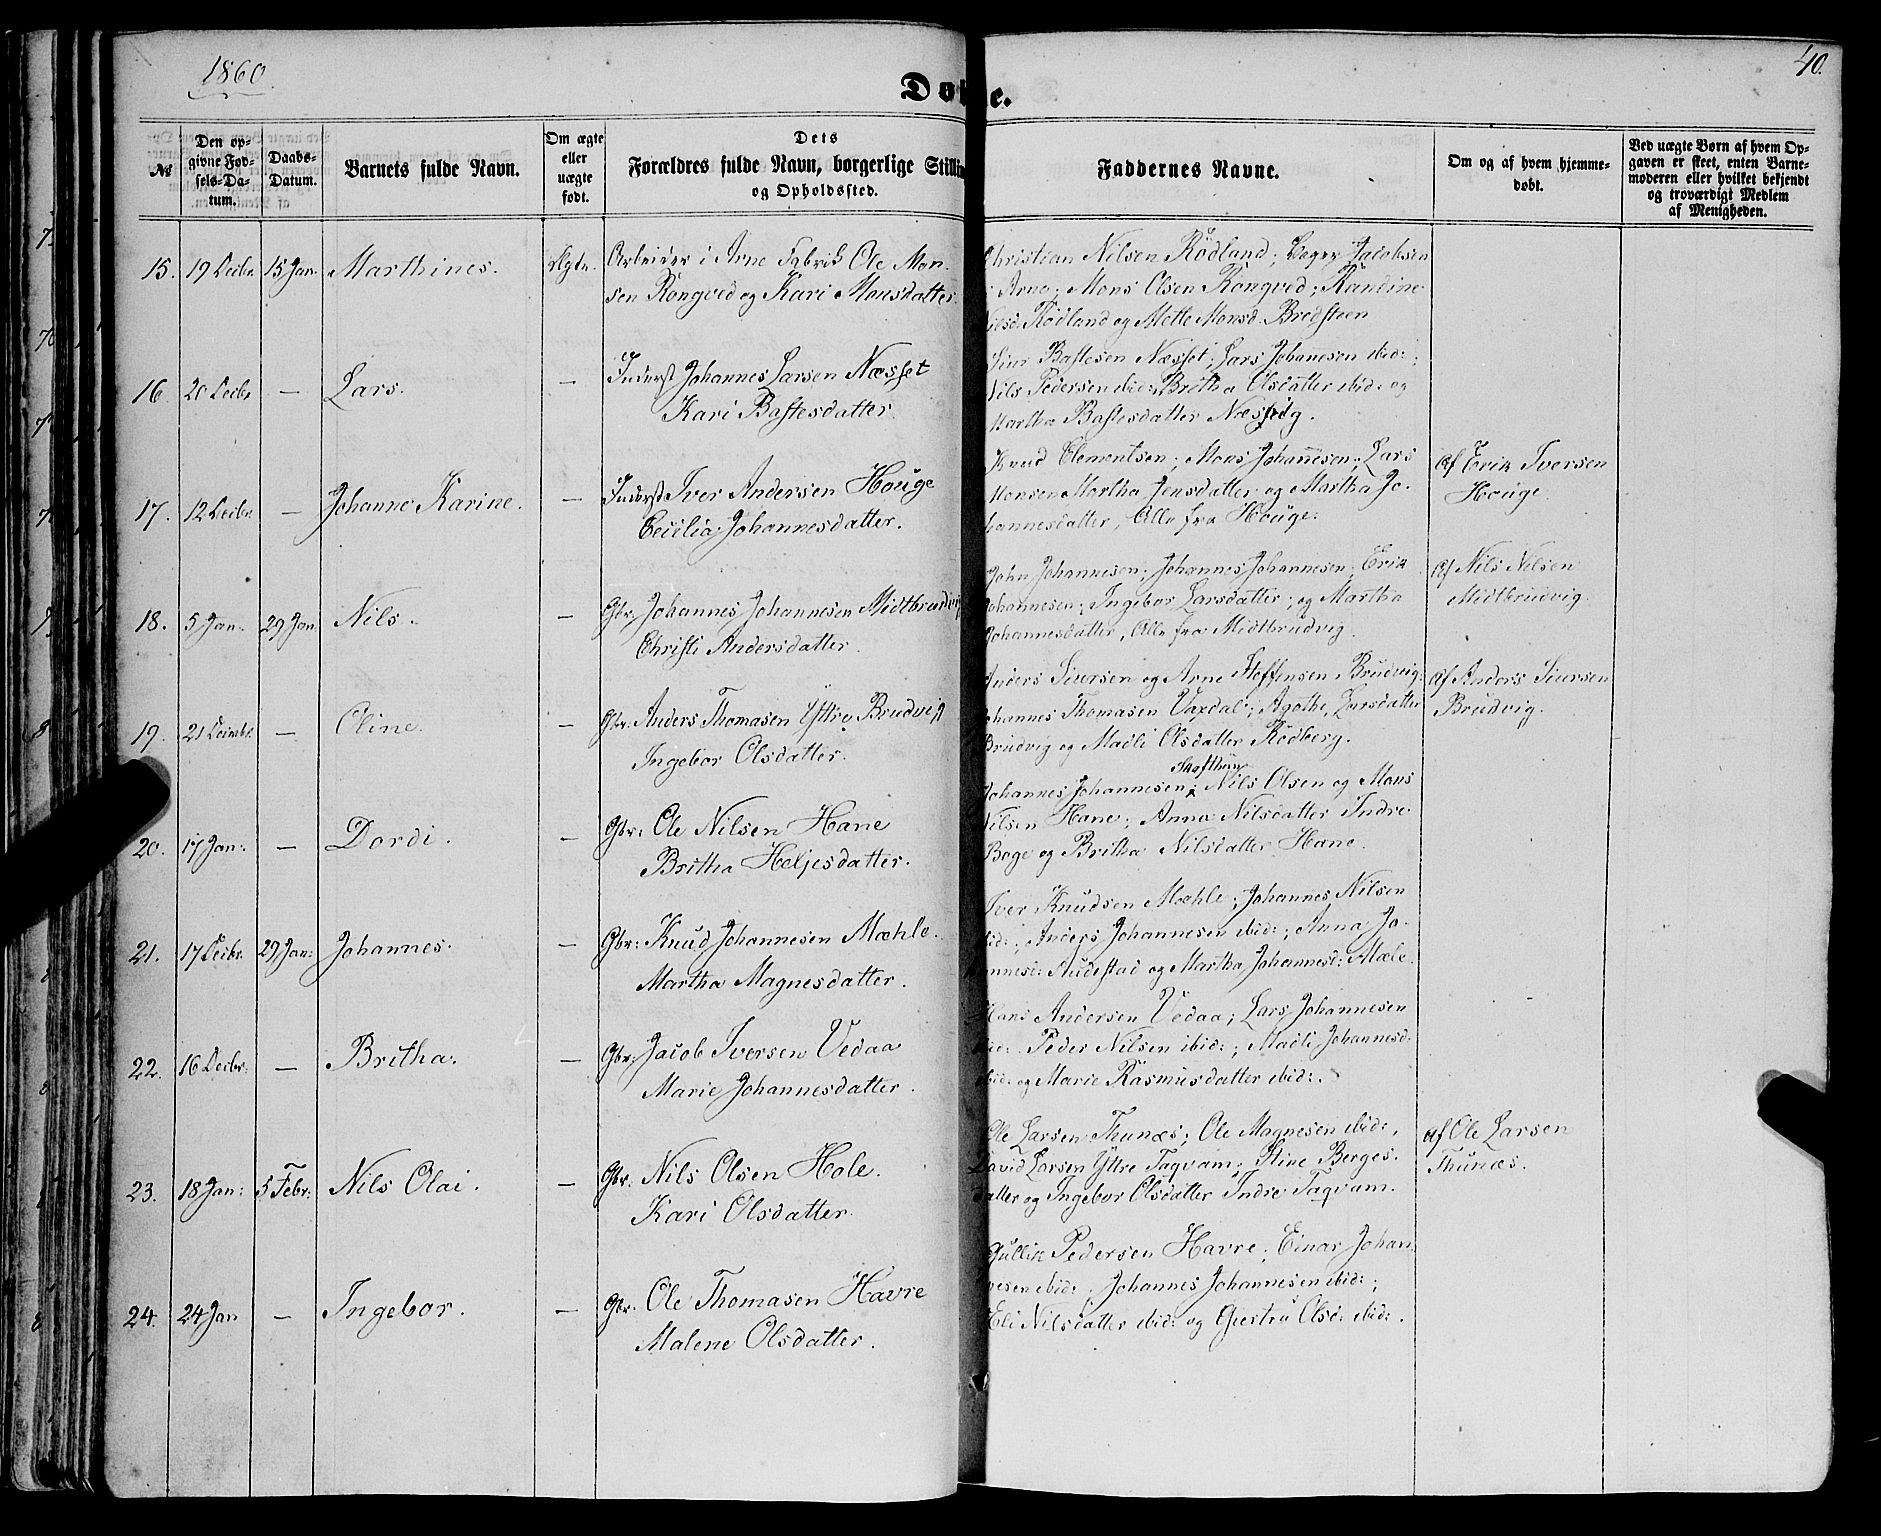 1860
40.
Døbte.
№
Den op-
givne Fød-
sels-Da-
tum.
Daabs-
Datum.
Barnets fulde Navn.
Om ægte
eller
uægte
født.
Dets
Forældres fulde Navn, borgerlige Stilling
og Opholdssted.
Faddernes Navne.
Om og af hvem hjemme-
døbt.
Ved uægte Børn af hvem Op-
gaven er skeet, enten Barne-
moderen eller hvilket bekjendt
og troværdigt Medlem
af Menigheden.
15. 19 Decbr 15 Jan. Marthines. Ægte. Arbeider i Arne Fabrik Ole Mon-
sen Rongved og Kari Monsdatter.
Christian Nilsen Rödland; Jacobsen
Arne; Mons Olsen Rongved; Randine
Nilsd. Rödland og Mette Monsd. Bredsteen
16. 20 Decbr — Lars. — Inderst Johannes Larsen Næsset
Kari Bastesdatter.
Siur Bastesen Næsset; Lars Johanesen ibid:;
Nils Pedersen ibid:; Britha Olsdatter ibid: og
Martha Bastesdatter
17. 12 Decbr — Johanne Karine. — Inderst Iver Andersen Houge
Cecilia Johannesdatter.
Knud Clementsen; Mons Johannesen; Lars
Monsen Martha Jensdatter og Martha Jo-
hannesdatter, Alle fra Houge:
Af Erik Iversen
Houge.
18. 5 Jan. 29 Jan. Nils. — Gbr. Johannes Johannesen Midtbrudvig
Christi Andersdatter.
John Johannesen; Johannes Johannesen; Erik
Johannesen; Ingebor Larsdatter; og Martha
Johannesdatter, Alle fra Midtbrudvig.
Af Nils Nilsen
Midtbrudvig.
19. 21 Decmbr. — Oline. — Gbr: Anders Thomasen Yttre Brudvig
Ingebor Olsdatter.
Anders Siursen og Arne Steffensen Brudvig;
Johannes Thomasen Vaxdal; Agathe Larsdatter
Brudvig og Madli Olsdatter Rödberg.
Af Anders Siursen
Brudvig.
20. 17 Jan: — Dordi. — Gbr: Ole Nilsen Hane
Britha Heljesdatter.
Skafthun
Johannes Johannesen; Nils Olsen og Mons
Nilsen Hane; Anna Nilsdatter Indre
Boge og Britha Nilsdatter Hane.
21. 17 Decbr. 29 Jan: Johannes. — Gbr: Knud Johannesen Mæhle.
Martha Magnesdatter.
Iver Knudsen Mæhle; Johannes Nilsen
ibid:; Anders Johannesen ibid:; Anna Jo-
hannesd: Audestad og Martha Johannesd: Mæle.
22. 16 Decbr: — Britha. — Gbr: Jacob Iversen Vedaa
Marie Johannesdatter.
Hans Andersen Vedaa; Lars Johannesen
ibid: Peder Nilsen ibid:; Madli Johannesd:
ibid: og Marie Rasmusdatter ibid:.
23. 18 Jan: 5 Febr: Nils Olai. — Gbr. Nils Olsen Hole.
Kari Olsdatter.
Ole Larsen Thunæs; Ole Magnesen ibid:,
David Larsen Yttre Taqvam; Stine Berges-
datter og Ingebor Olsdatter Indre Taqvam.
af Ole Larsen
Thunæs.
24. 24 Jan — Ingebor. — Gbr. Ole Thomasen Havre
Malene Olsdatter.
Gullik Pedersen Havre; Einar Johan-
nesen ibid: Johannes Johannesen ibid:;
Eli Nilsdatter ibid: og Gjertru Olsd: ibid:.